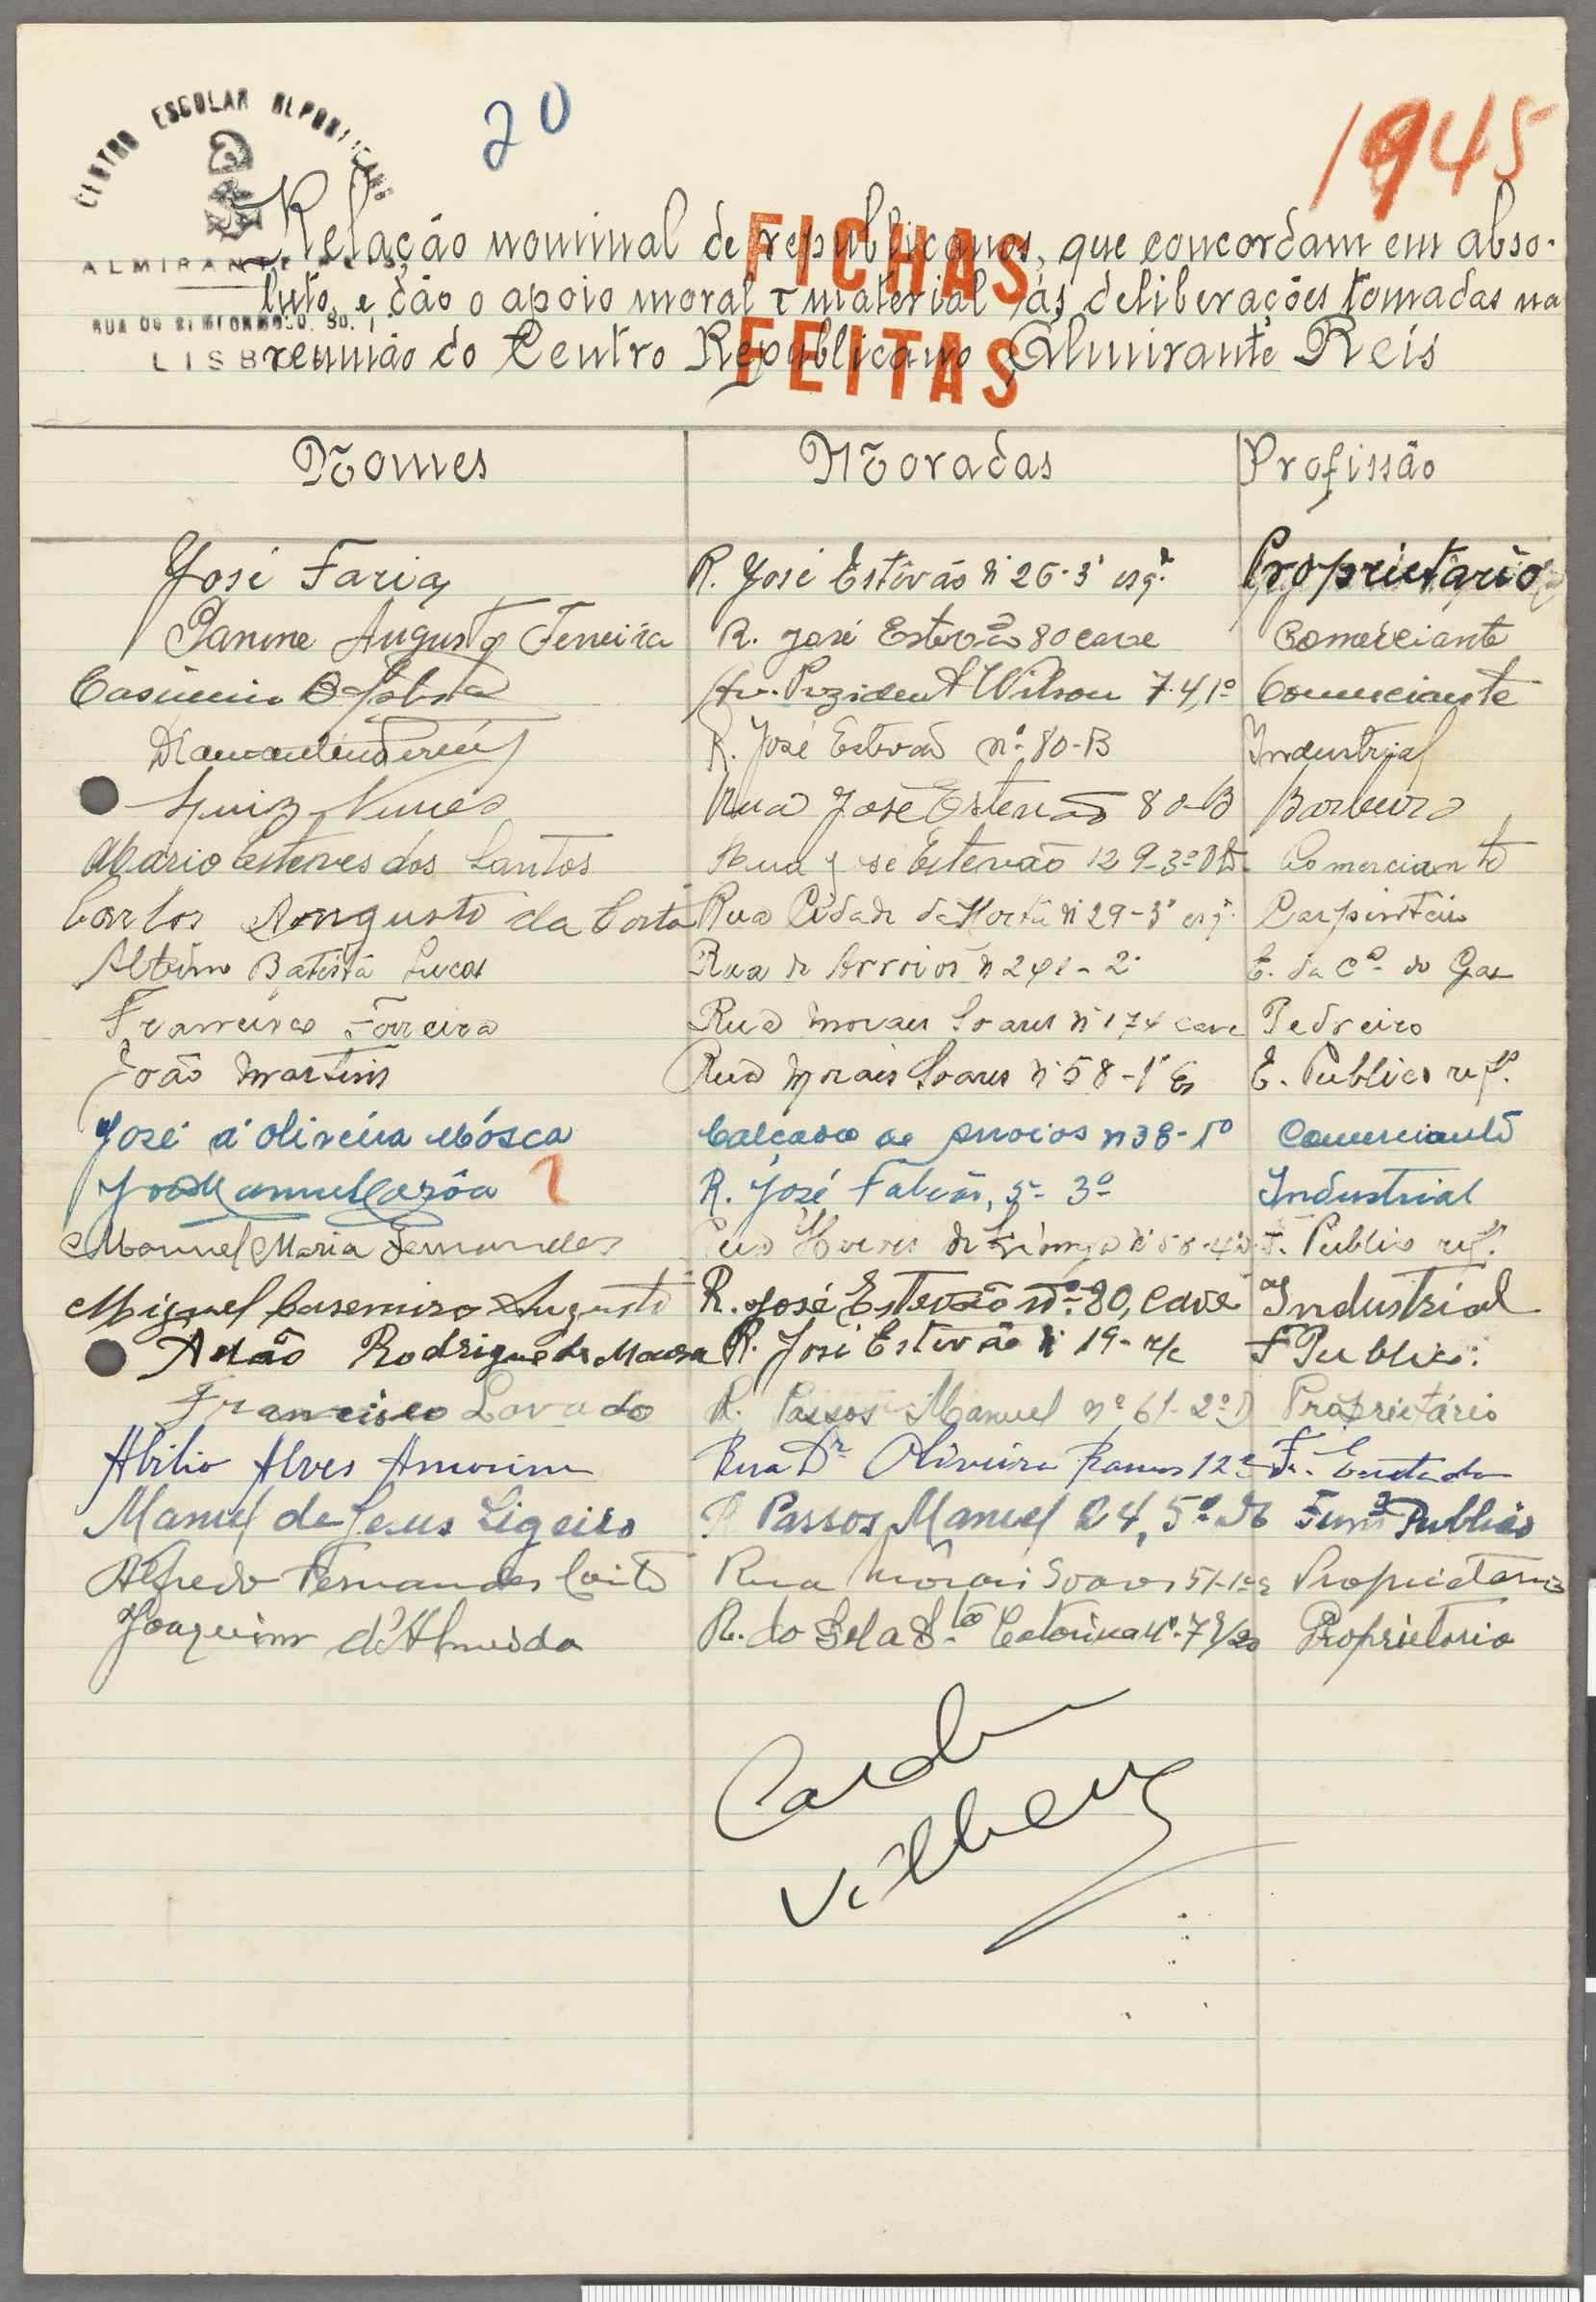 CENTRO ESCOLAR REPUBLICANO
20
1945
ALMIRANTE REIS
LISBOA
FICHAS
FEITAS
Relação nominal de republicanos, que concordam em abso-
luto, e dão o apoio moral e material ás deliberações tomadas na
reunião do Centro Republicano Almirante Reis
Nomes Moradas Profissão
José Faria R. José Estêvão nº 26-3º esqº Proprietario
Augusto Ferreira R. José Estevão 80 cave Comerciante
Casimiro Av. Prezident Wilson 7.4,1º Comerciante
R. José Estevão nº 80-B Industrial
Luiz Nunes Rua José Estevão 80-B Barbeiro
Mario Esteves dos Santos Rua José Estevão 129-3º Dto Comerciante
Carlos Augusto da Costa Rua Cidade da Horta nº 29-3º esqº Carpinteiro
Albino Batista Lucas Rua de Arroios nº 2º E. da Cª do Gas
Francisco Ferreira Rua Morais Soares nº 174 cave Pedreiro
João Martins Rua Morais Soares nº 58-1º E. Publico refº.
José d'Oliveira Môsca Calçada de Arroios nº 38-1º Comerciante
R. José Falcão, 5- 3º Industrial
Manuel Maria Fernandes Rua Heroes de Quionga Publico refº.
Miguel Casemiro Augusto R. José Estevão nº 80, cave Industrial
Adão Rodrigues de Moura R. José Estevão nº 19-r/c F Publico
Francisco Lavado R. Passos Manuel nº 61-2º D Proprietário
Abilio Alves Amorim Rua Dr Oliveira Ramos 12
Manuel de Jesus Ligeiro R Passos Manuel 24, 5º Dto Funº Publico
Alfredo Fernandes Couto Rua Morais Soares 51-1º Proprietario
Joaquim d'Almeida R. do Sol a Sta Catarina Proprietario